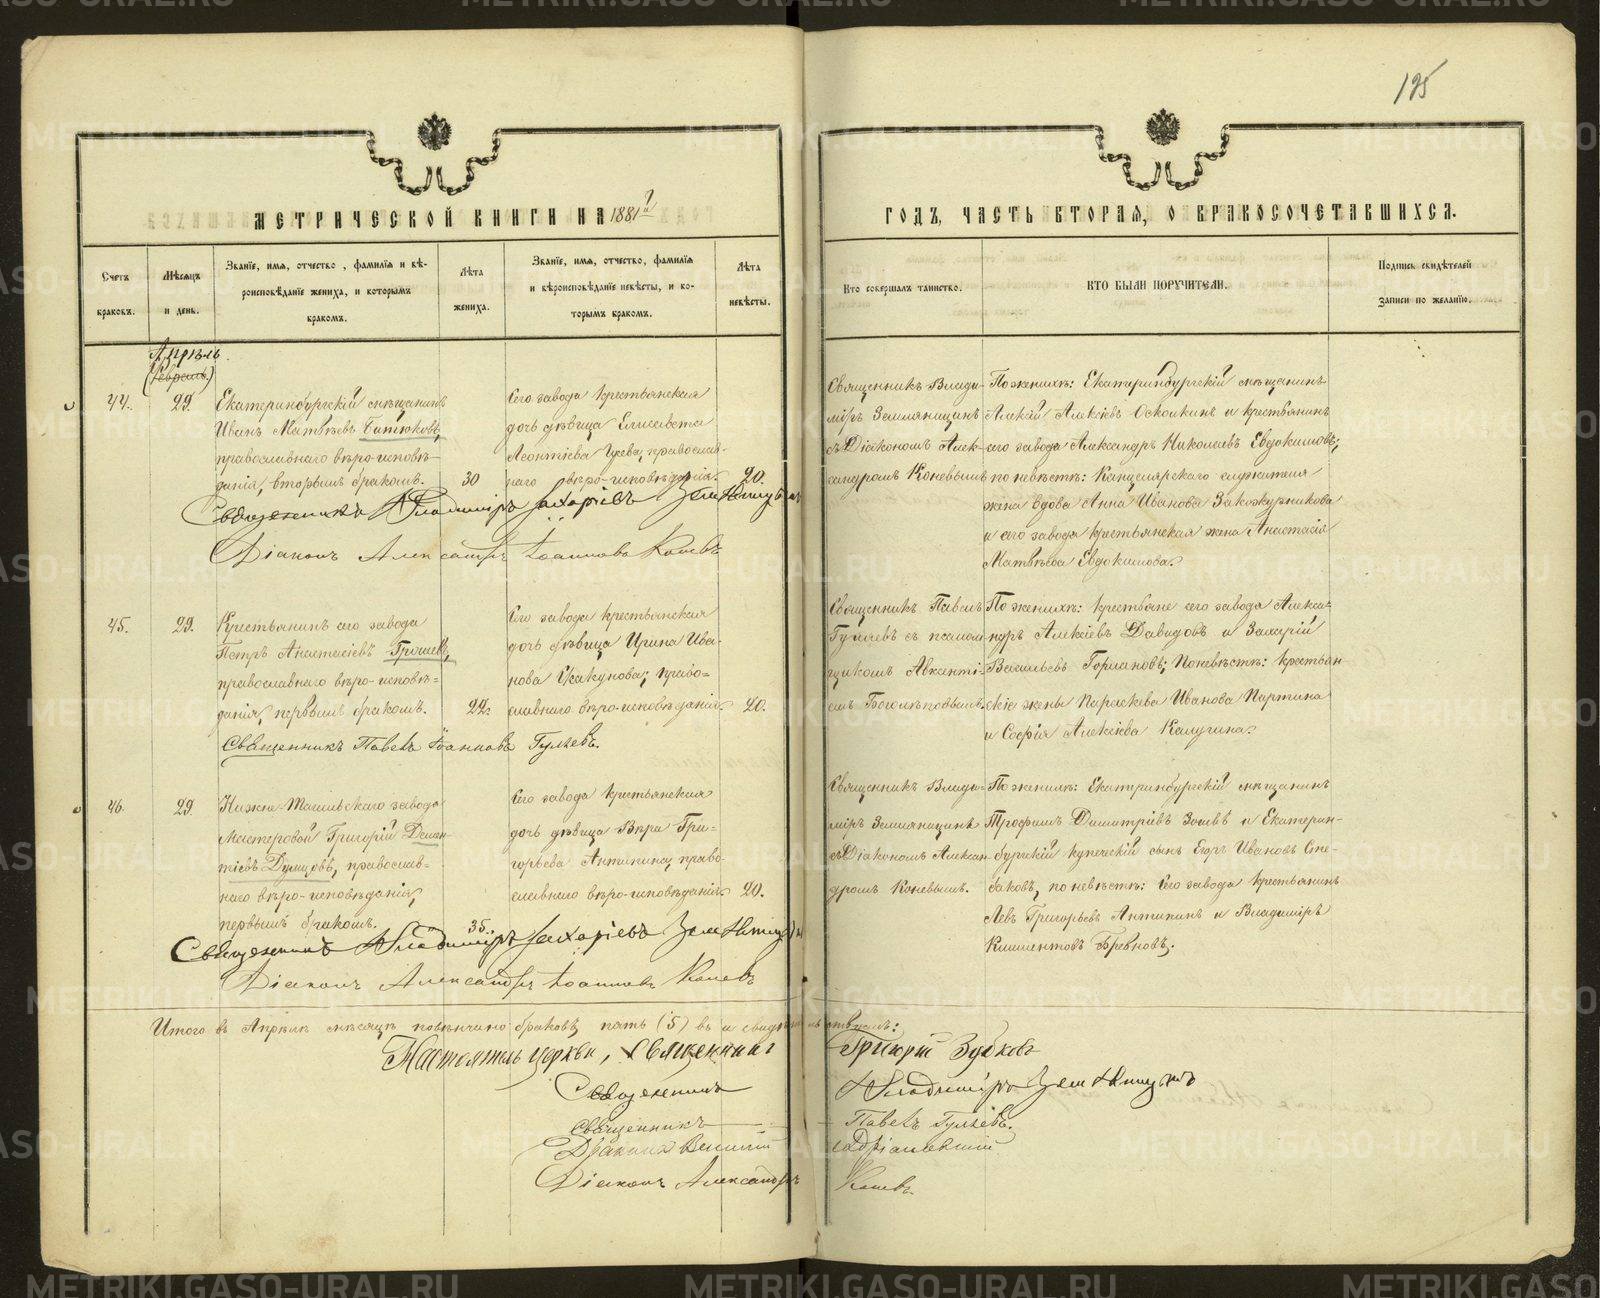 195
МЕТРИЧЕСКОЙ КНИГИ НА 1881й
ГОДЪ, ЧАСТЬ ВТОРАЯ, О БРАКОСОЧЕТАВШИХСЯ.
Счетъ браковъ.
Мѣсяцъ и день.
Званіе, имя, отчество, фамилія и вѣ-
роисповѣданіе жениха, и которымъ
бракомъ.
Лѣта жениха.
Званіе, имя, отчество, фамилія
и вѣроисповѣданіе невѣсты, и ко-
торымъ бракомъ.
Лѣта невѣсты.
Кто совершалъ таинство.
КТО БЫЛИ ПОРУЧИТЕЛИ.
Подпись свидѣтелей
записи по желанію.
Апрѣль.
(Февраль.)
44.
29.
Екатеринбургскій мѣщанинъ
Иванъ Матвѣевъ
православнаго вѣро-исповѣ-
данія, вторымъ бракомъ.
30
Сего завода крестьянская
дочь дѣвица Елисавета
Леонтіева Гусева, православ-
наго вѣро-исповѣданія.
20.
Священникъ Влади-
міръ Земляницынъ
съ Діакономъ Алек-
сандромъ Коневымъ
По женихѣ: Екатеринбургскій мѣщанинъ
Алексій Алексіевъ Осколкинъ и крестьянинъ
сего завода Александръ Николаевъ Евдокимовъ;
по невѣстѣ: Канцелярскаго служителя
жена вдова Анна Иванова Закожурникова
и сего завода крестьянская жена Анастасія
Матвѣева Евдокимова.
Священникъ Владиміръ Захаріевъ Земляницынъ
Діаконъ Александръ Іоанновъ Коневъ
45.
29.
Крестьянинъ сего завода
Петръ Анастасіевъ Грошевъ,
православнаго вѣро-исповѣ-
данія, первымъ бракомъ.
22.
Сего завода крестьянская
дочь дѣвица Ирина Ива-
нова Искакунова; право-
славнаго вѣро-исповѣданія.
20.
Священникъ Павелъ
Гуляевъ съ псалом-
щикомъ Авксенті-
емъ Боголѣповымъ.
По женихѣ: крестьяне сего завода Алекса-
ндръ Алексіевъ Давидовъ и Захарій
Васильевъ Гормановъ; По невѣстѣ: крестьян
скіе жены Параскева Иванова Партина
и Софія Алексіева Калугина.
Священникъ Павелъ Іоанновъ Гуляевъ.
46.
29.
Нижне-Тагильскаго завода
Мастеровой Григорій Демен-
тіевъ православ-
наго вѣро-исповѣданія,
первымъ бракомъ.
35.
Сего завода крестьянская
дочь дѣвица Вѣра Гри-
горьева Антипина, право-
славнаго вѣро-исповѣданія.
20.
Священникъ Влади-
міръ Земляницынъ
съ Діакономъ Алексан-
дромъ Коневымъ.
По женихѣ: Екатеринбургскій мѣщанинъ
Трофимъ Димитріевъ Зыевъ и Екатерин-
бургскій купеческій сынъ Егоръ Ивановъ Сте-
баковъ, по невѣстѣ: Сего завода крестьянинъ
Левъ Григорьевъ Антипинъ и Владиміръ
Климентовъ Бревновъ.
Священникъ Владиміръ Захаріевъ Земляницын
Діаконъ Александръ Іоанновъ Коневъ
Итого въ Апрѣлѣ мѣсяцѣ повѣнчано браковъ пять (5) въ
Настоятель церкви, Священникъ Григорій Зубковъ
Священникъ Владиміръ Земляницынъ
Священникъ Павелъ Гуляевъ.
Адріановскій
Діаконъ Александръ Коневъ.
METRIKI.GASO-URAL.RU